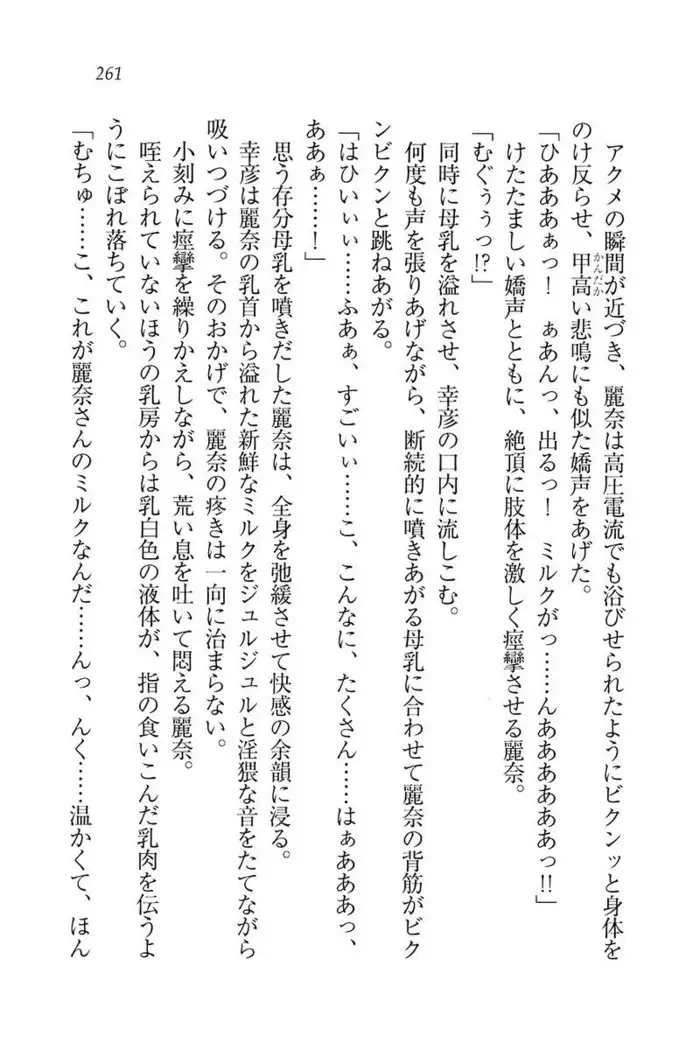 261
アクメの瞬間が近づき、麗奈は高圧電流でも浴びせられたようにビクンッと身体を
のけ反らせ、甲高い悲鳴にも似た嬌声をあげた。
「ひあああぁっ！　ぁあんっ、出るっ！　ミルクがっ……んああああああっ!!」
けたたましい嬌声とともに、絶頂に肢体を激しく痙攣させる麗奈。
「むぐぅぅっ!?」
同時に母乳を溢れさせ、幸彦の口内に流しこむ。
何度も声を張りあげながら、断続的に噴きあがる母乳に合わせて麗奈の背筋がビク
ンビクンと跳ねあがる。
「はひいぃぃ……ふあぁ、すごいぃ……こ、こんなに、たくさん……はぁあああっ、
ああぁ……！」
思う存分母乳を噴きだした麗奈は、全身を弛緩させて快感の余韻に浸る。
幸彦は麗奈の乳首から溢れた新鮮なミルクをジュルジュルと淫猥な音をたてながら
吸いつづける。そのおかげで、麗奈の疼きは一向に治まらない。
小刻みに痙攣を繰りかえしながら、荒い息を吐いて悶える麗奈。
咥えられていないほうの乳房からは乳白色の液体が、指の食いこんだ乳肉を伝うよ
うにこぼれ落ちていく。
「むちゅ……こ、これが麗奈さんのミルクなんだ……んっ、んく……温かくて、ほん